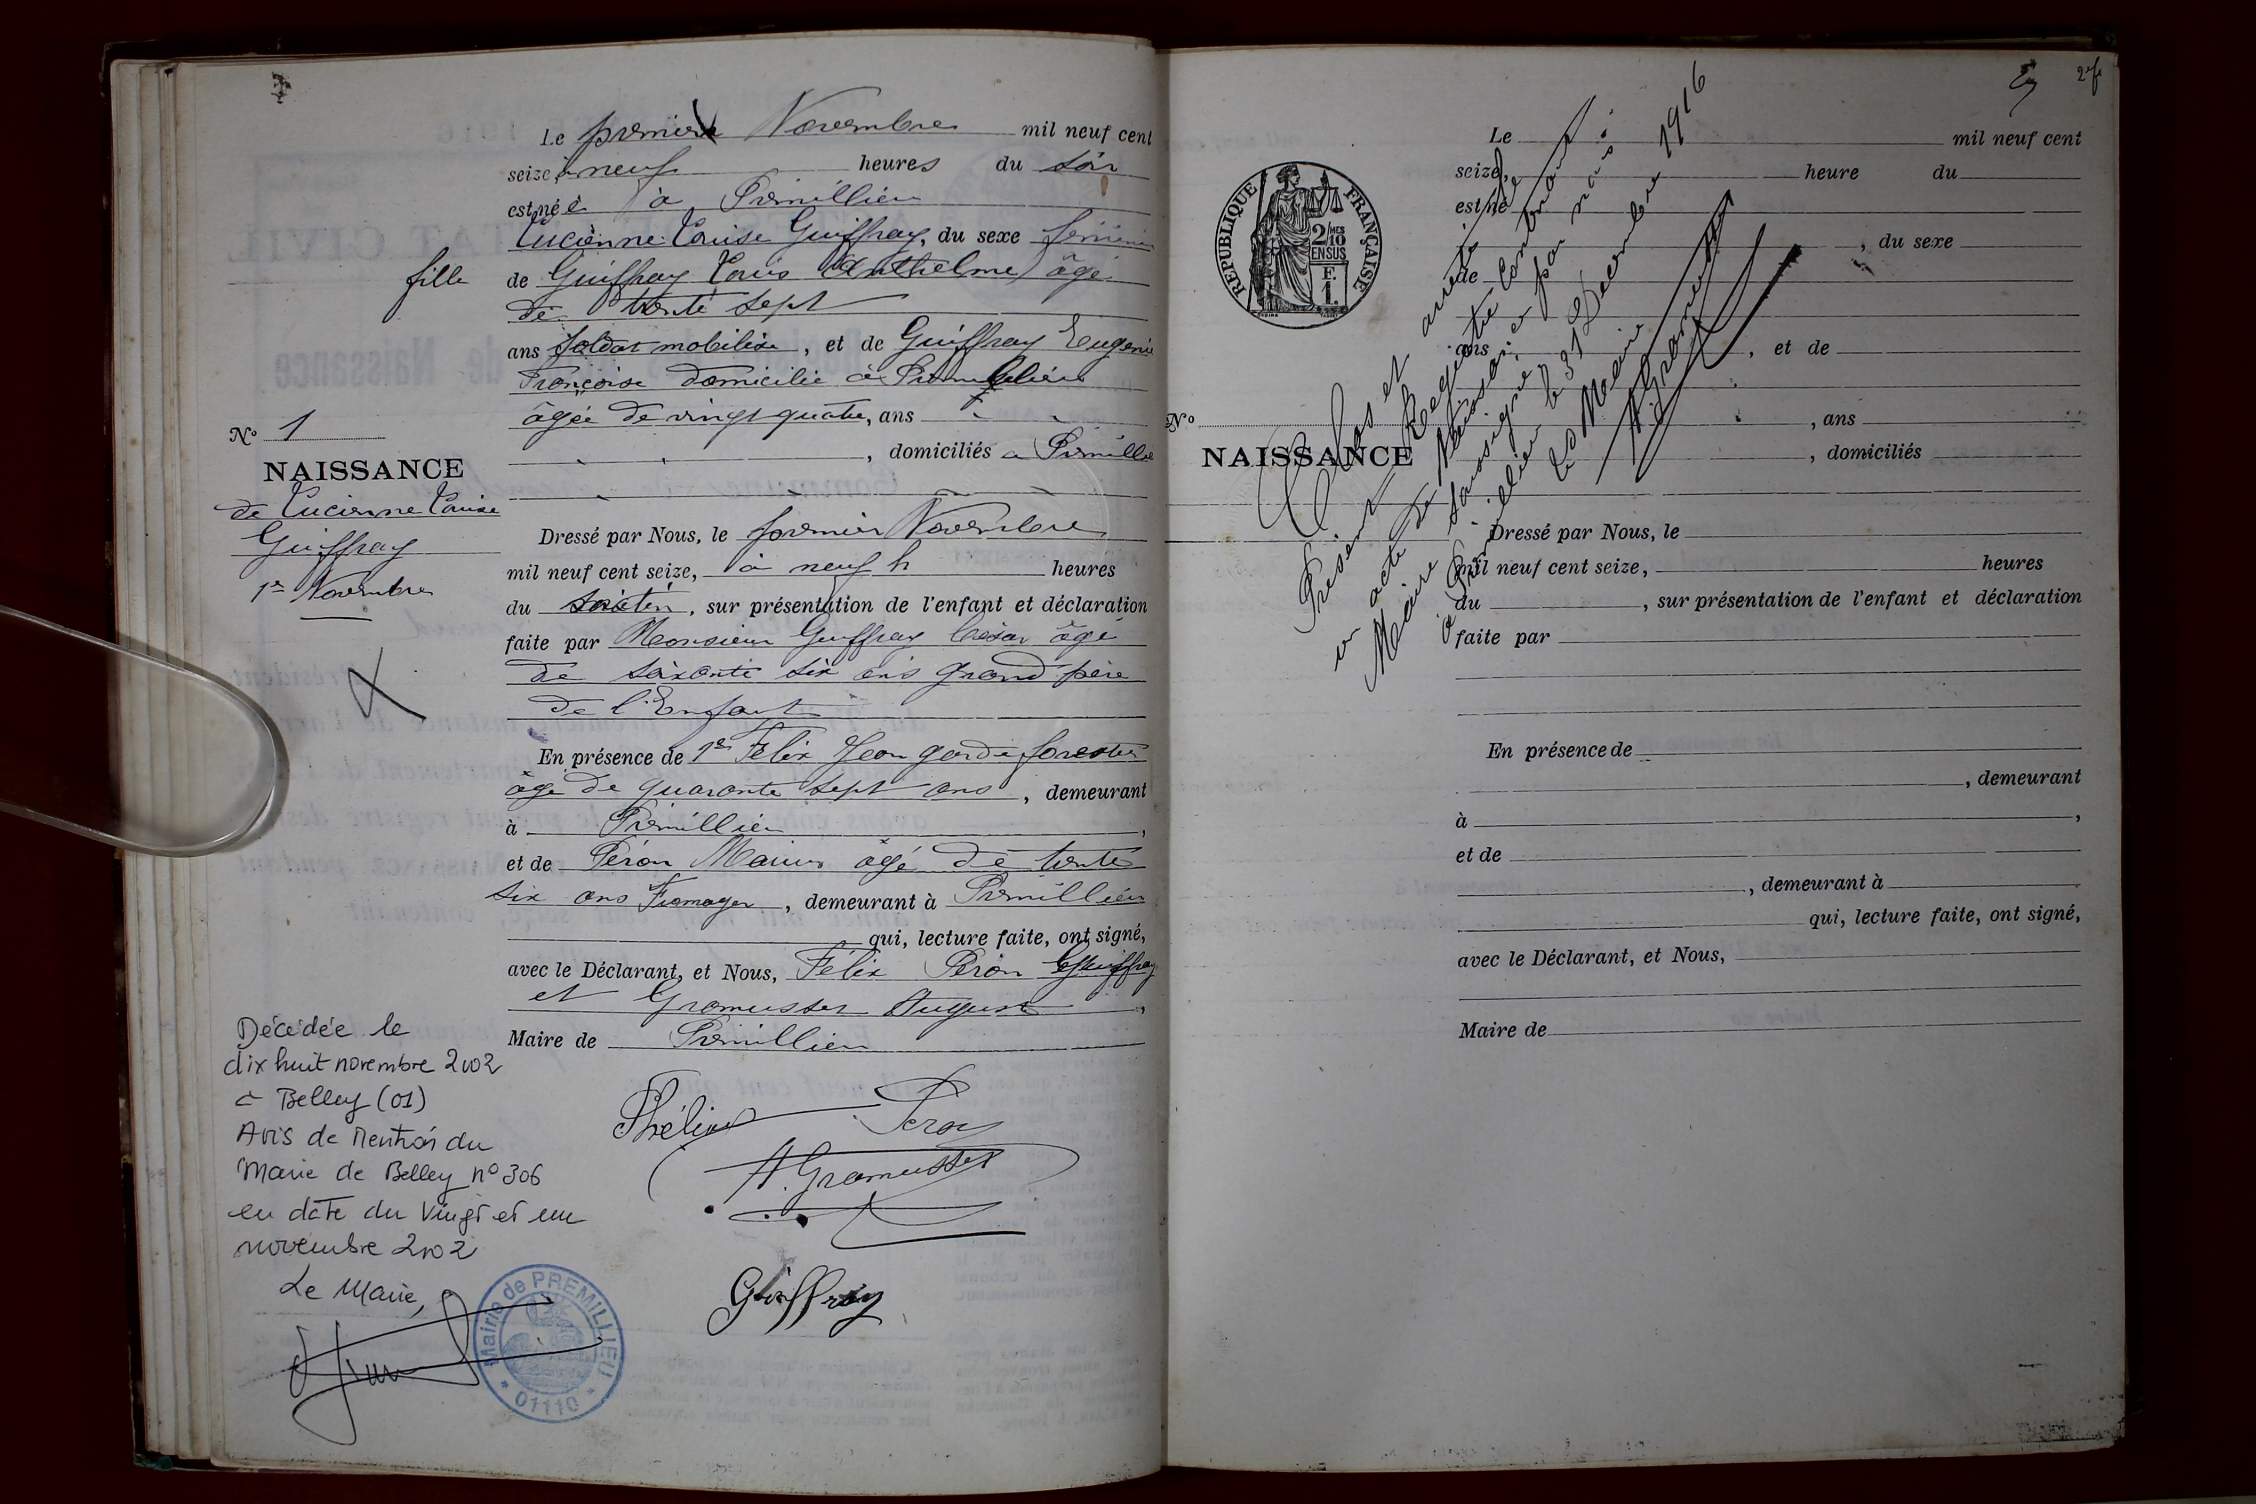 Le premier Novembre mil neuf cent
seize, à neuf heures du soir
est né e à Prémillieu
Lucienne Louise Guiffray, du sexe féminin
fille de Guiffray Louis Anthelme âgé
de trente sept
ans soldat mobilisé, et de Guiffray Eugenie
Françoise domicilié à Prémillieu
âgée de vingt quatre, ans
, domiciliés à Prémillieu
No 1
NAISSANCE
de Lucienne Louise
Guiffray
1er Novembre
Dressé par Nous, le premier Novembre
mil neuf cent seize, à neuf h heures
du , sur présentation de l'enfant et déclaration
faite par Monsieur Guiffray César âgé
de soixante six ans grand père
de l'Enfant
En présence de 1er Félix Jean garde forestier
âgé de quarante sept ans, demeurant
à Prémillieu,
et de Péron Marius âgé de trente
six ans Fromager, demeurant à Prémillieu
qui, lecture faite, ont signé,
avec le Déclarant, et Nous, Félix Péron Guiffray
et Gramusset Auguste,
Maire de Prémillieu
Phélix Peron
A. Gramusset
Guiffray
Décédée le
dix huit novembre 2002
à Belley (01)
Avis de Mention du
Maire de Belley no 306
en date du vingt et un
novembre 2002
Le Maire,
Mairie de PREMILLIEU
* 01110 *
2
RÉPUBLIQUE FRANÇAISE
2/10 MES
EN SUS
F.
1.
Le mil neuf cent
seize, heure du
est né
, du sexe
de
ans , et de
No
, ans
NAISSANCE
, domiciliés
Dressé par Nous, le
mil neuf cent seize, heures
du , sur présentation de l'enfant et déclaration
faite par
En présence de
, demeurant
à ,
et de
, demeurant à
qui, lecture faite, ont signé,
avec le Déclarant, et Nous,
Maire de
Clos et arrêté le
Présent Registre Contenant :
un acte de Naissance par nous
Maire soussigné,
à Prémillieu le 31 Decembre 1916
Le Maire
A. Gramusset